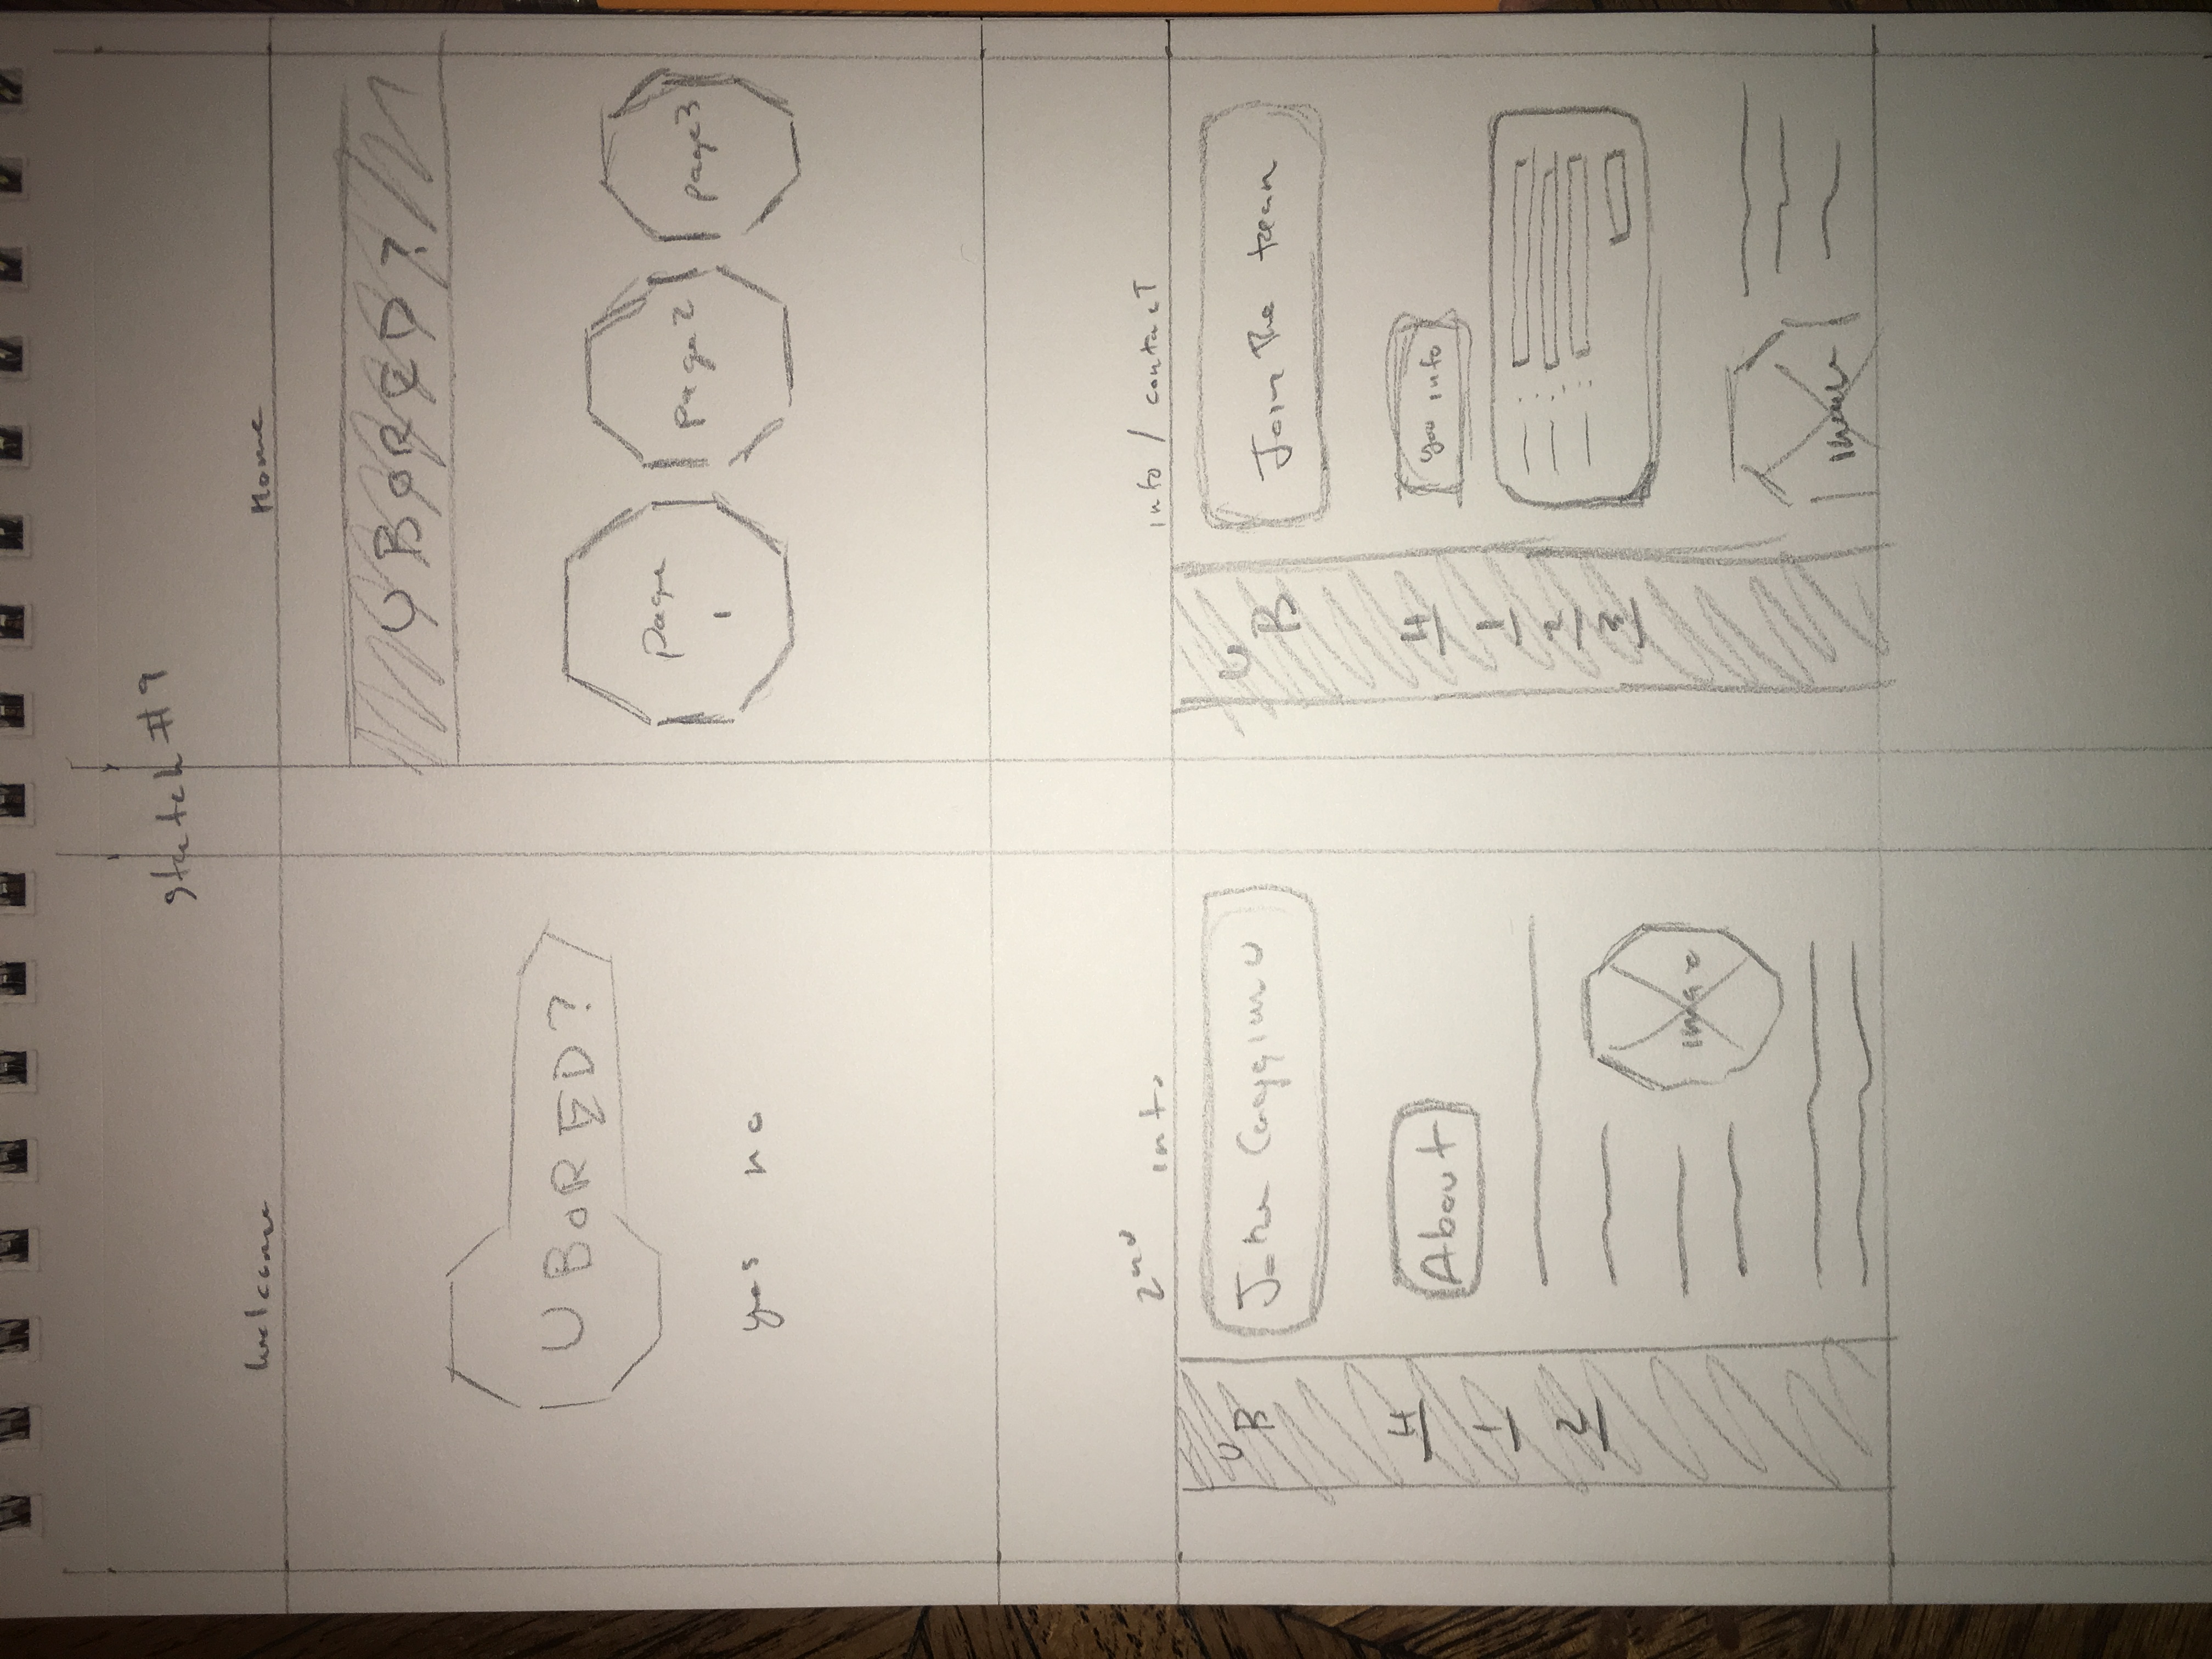 sketch #9
welcome
U BORED?
yes no
Home
U BORED?
page
1
page2
page3
2nd info
U
B
H
1
2
About
image
info / contact
U
B
H
1
2
3
Join The team
you info
image